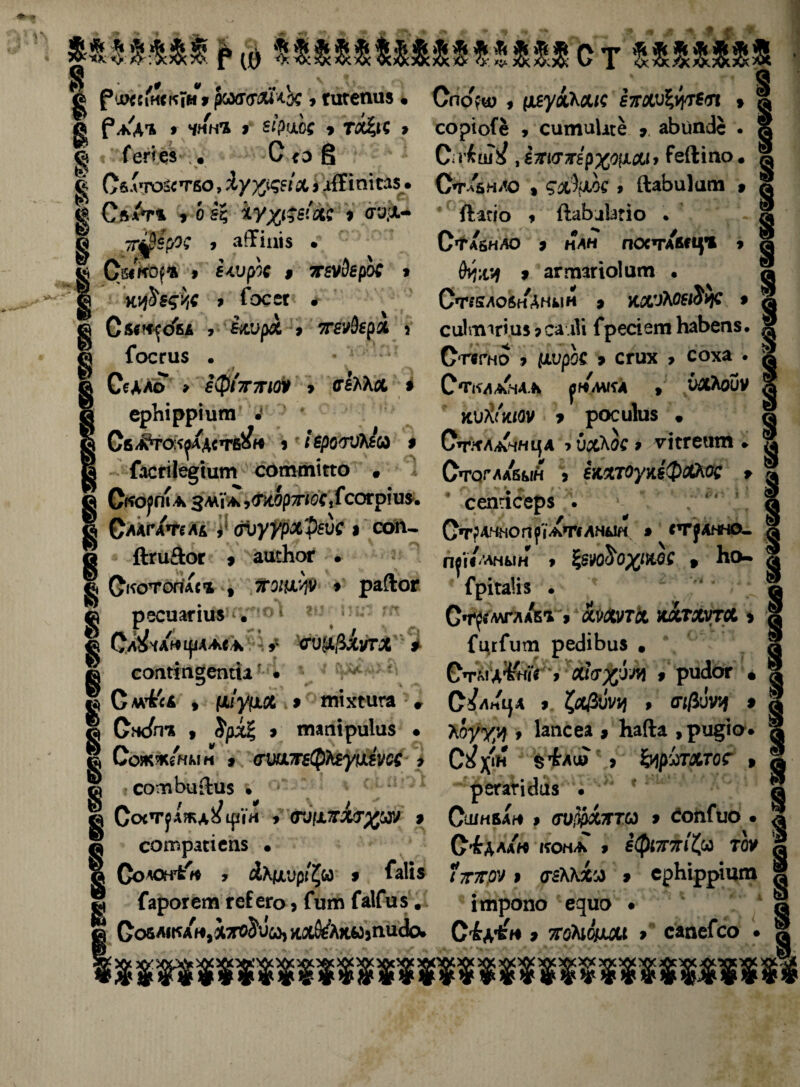 рѡ ст
рѡссїйскїй, ῥωσσαϊκὸς, rutenus.
рѧдъ, чинъ, εἱρμὸς, τάξις,
series. Ст҃в
Сватовство, ἀγχιςεία, affinitas.
Сватъ, ὁ ἐξ ἀγχιςείας, συμ-
πένθερος, affinis.
Свекоръ, ἑκυρὸς, πενθερὸς,
κηδεςὴς, socer.
Свекрова, ἑκυρὰ, πενθερὰ,
socrus.
Седло, ἐφίππιον, σέλλα,
ephippium.
ἱεροσυλέω,
sacrilegium committo.
Скорпїа ѕмїѧ, σκόρπιος, scorpius.
Слагатель, συγγραφεὺς, con-
structor, author.
Скотопасъ, ποιμὴν, pastor
pecuarius.
Случающаѧсѧ, συμβάντα,
contingentia.
Смѣсь, μίγμα, mixtura.
Снопъ, δρὰξ, manipulus.
Сожженый, συμπεφλεγμένος,
combustus.
Состраждущїй, συμπάσχων,
compatiens.
Солонѣй, ἁλμυρίζω, salis
saporem refero, sum salsus.
Совлкай, ἀποδύω, καθέλκω, nudo.
Споро, μεγάλαις ἐπαυξήτεσι,
copiosè, cumulatè, abundè.
ἐπισπέρχομαι, festino.
Ставило, ςαθμὸς, stabulum,
statio, stabulatio.
Ставило, или поставецъ,
θήκη, armariolum.
Стеблови́дный, καυλοειδὴς,
culmarius, cauli speciem habens.
Стегно, μυρὸς, crux, coxa.
Стклѧна рюмка, ὑαλοῦν
κυλίκιον, poculus.
Стклѧница, ὑαλὸς, vitreum.
Стоглавый, ἑκατογκέφαλος,
centiceps.
Страннопрїѧтелный, странно-
прїемный, ξενοδοχικὸς, ho-
spitalis.
Стремглавъ, ἀνάντα κάταντα,
sursum pedibus.
Стыдѣнїе, αἰσχύνη, pudor.
Сулица, ζαβύνη, σιβύνη,
λόγχη, lancea, hasta, pugio.
Сухїй ѕѣлѡ, ξηρώτατος,
peraridus.
Сшивай, συῤῥάπτω, confuo.
Сѣдлай конѧ, ἐφιππίζω τὸν
ἵππον, σελλάω, ephippium
impono equo.
Сѣдѣй, πολιόμαι, canesco.